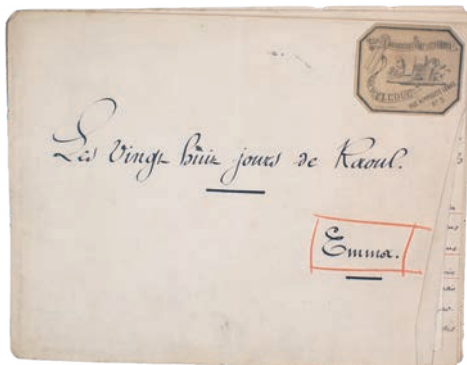 LEDUC
Les Vingt huit jours de Raoul.
Emma.